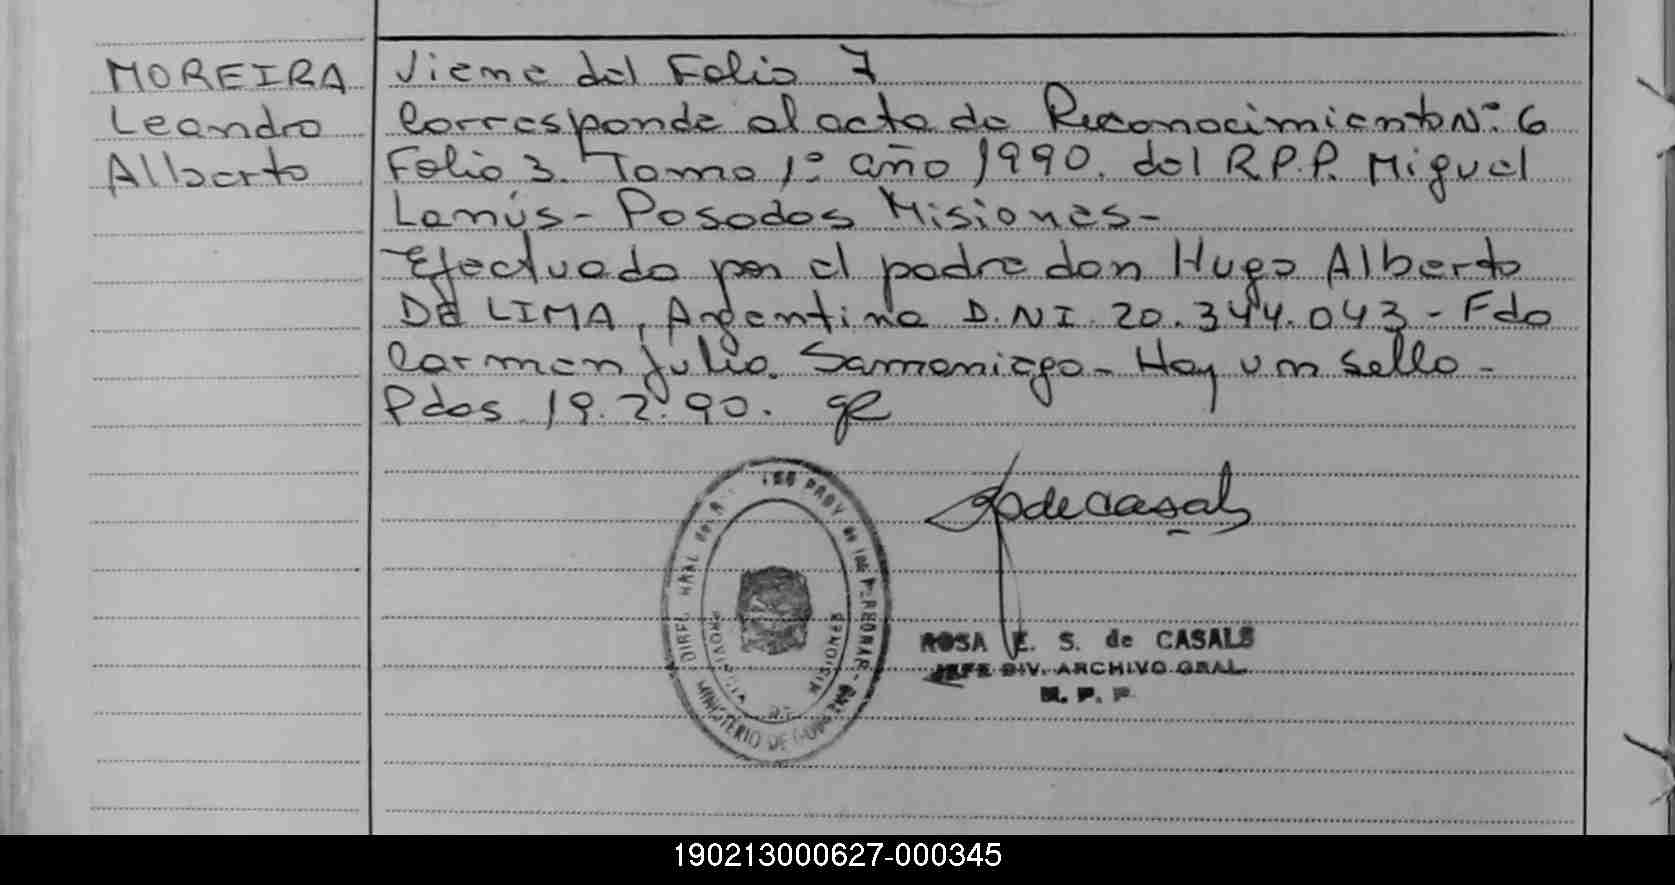 MOREIRA
Leandro
Alberto
Viene del Folio 7
Corresponde al acta de Reconocimiento Nº 6
Folio 3. Tomo 1º año 1990. del R.P.P. Miguel
Lanús - Posadas Misiones -
Efectuado por el padre don Hugo Alberto
De LIMA, Argentino D.N.I. 20.344.043 - Fdo
Carmen Julia Samaniego - Hay un sello -
Pdas 19.2.90.
de Casals
ROSA E. S. de CASALS
JEFE DIV. ARCHIVO GRAL.
R. P. P.
PROV. de las PERSONAS
MINISTERIO DE GOBIERNO
PROVINCIA
MISIONES
190213000627-000345